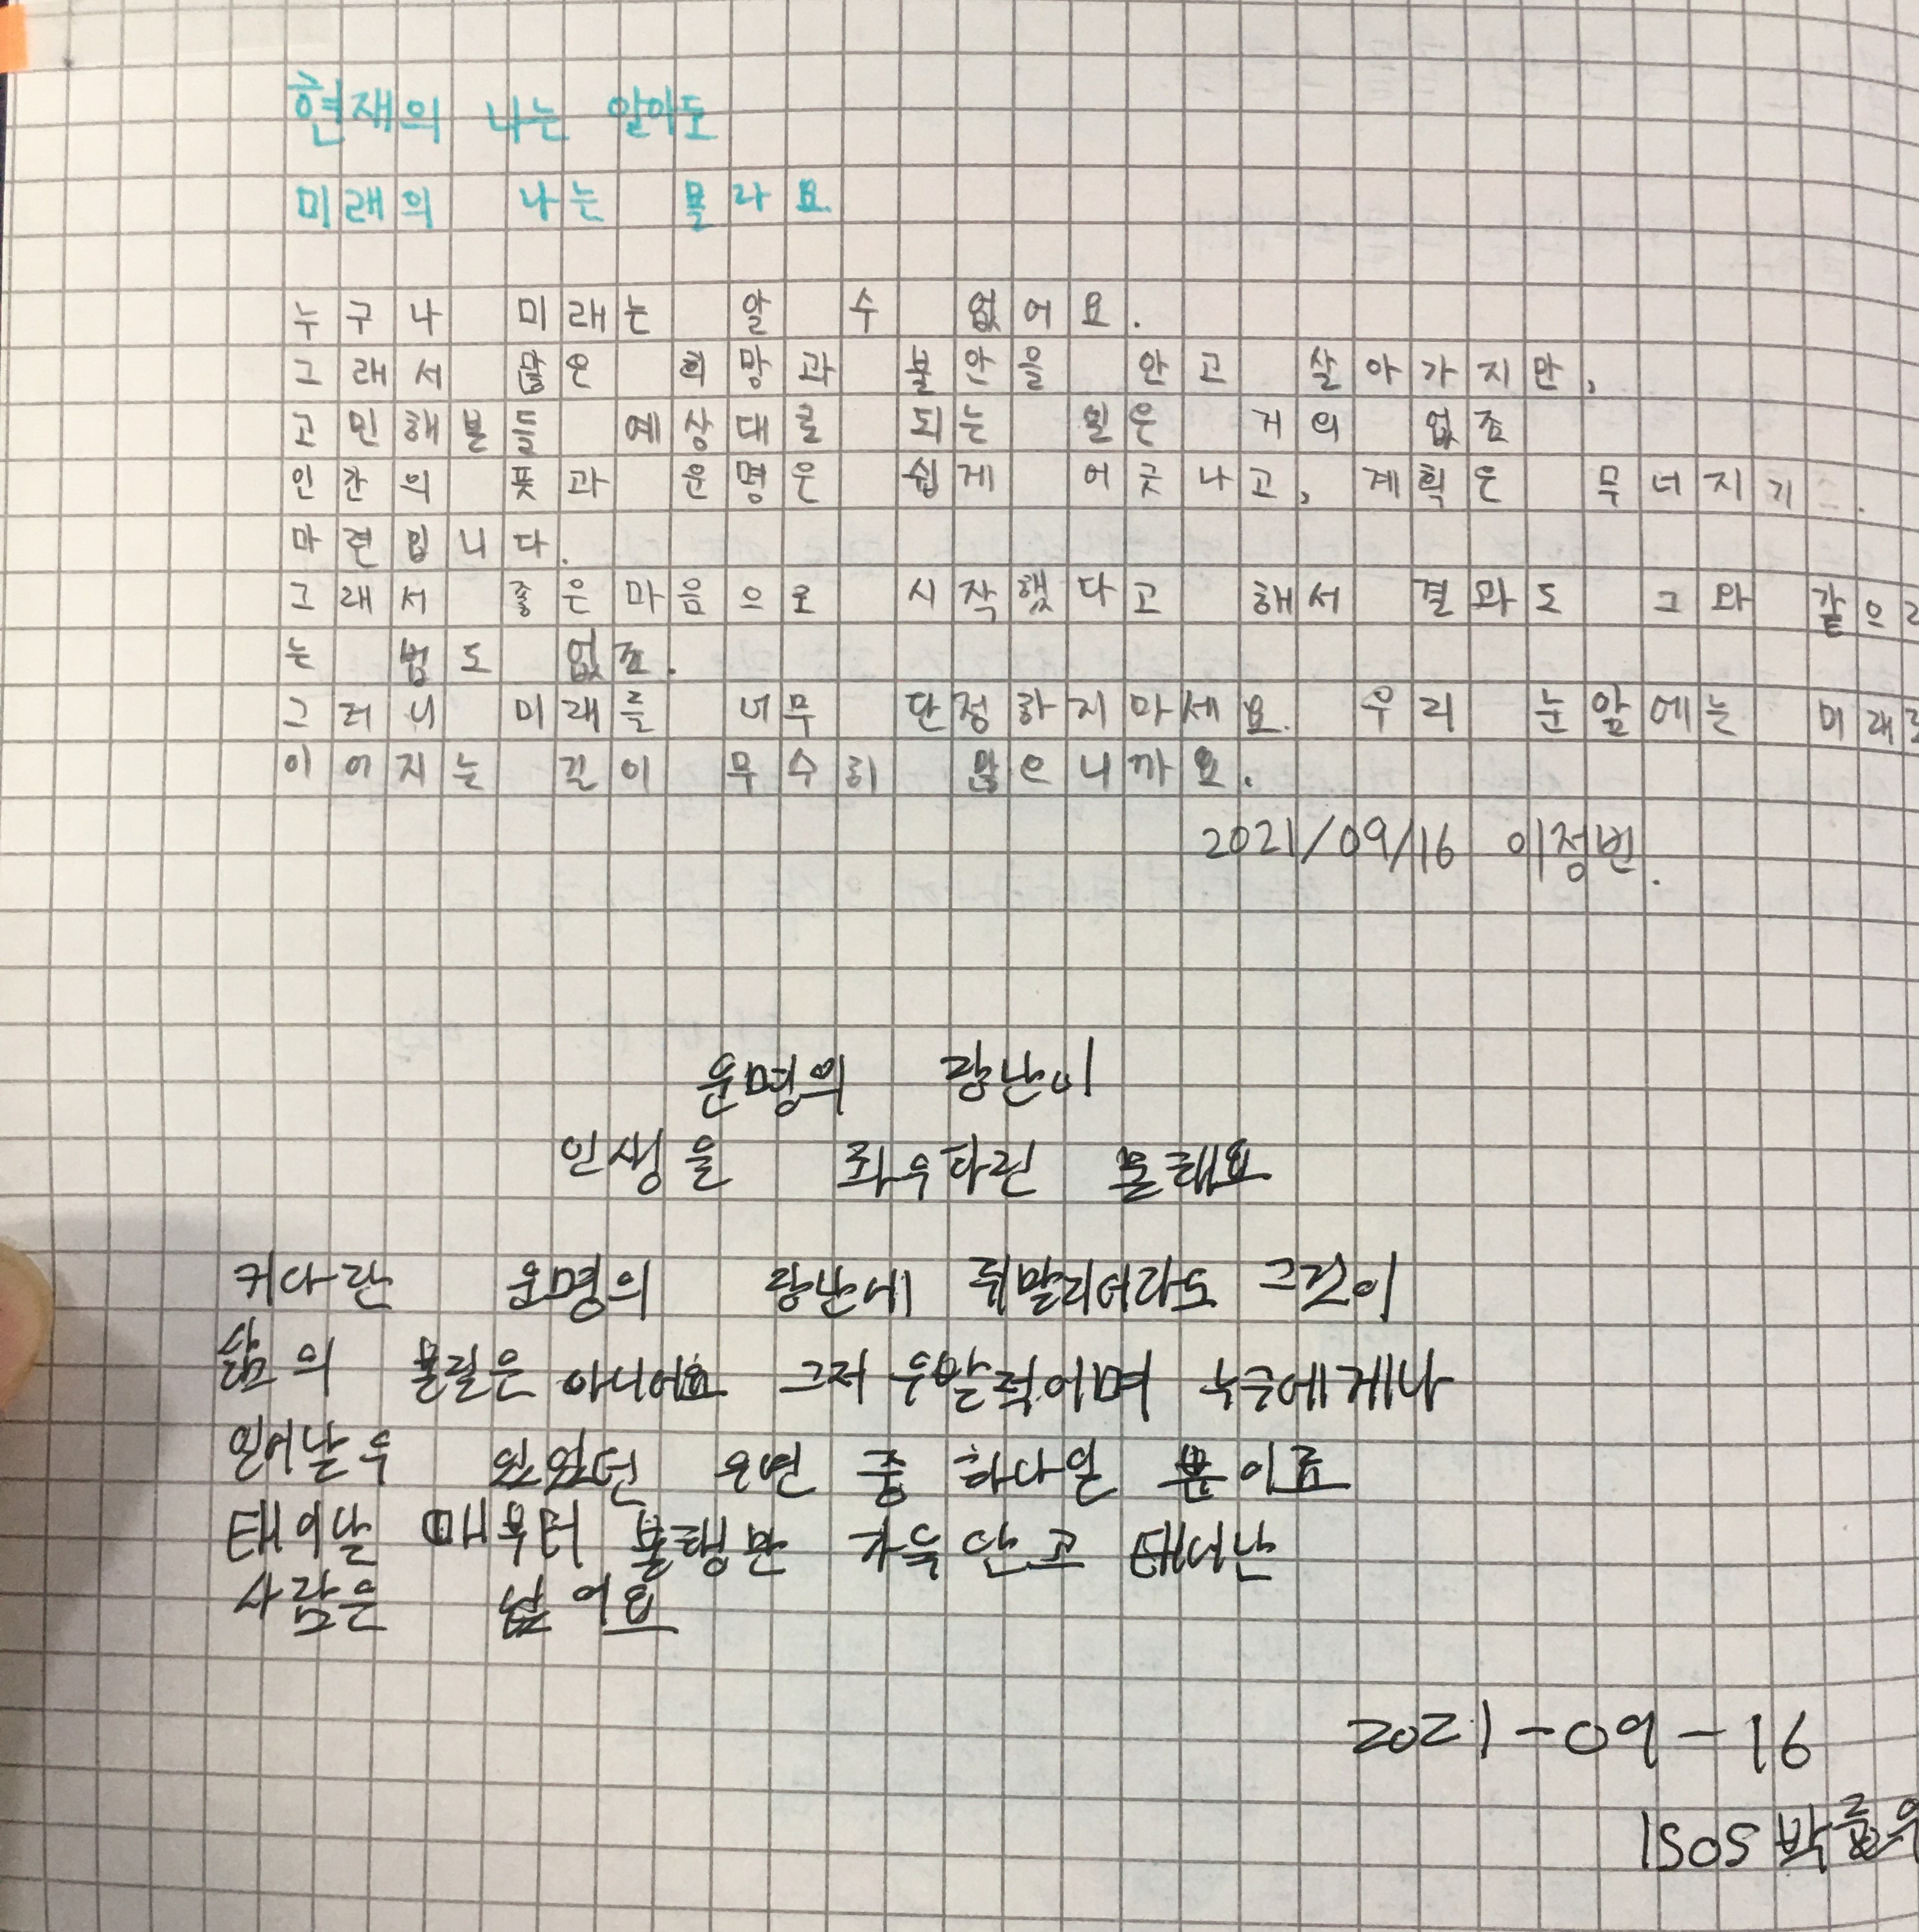 현재의 나는 알아도
미래의 나는 몰라요
누구나 미래는 알 수 없어요.
그래서 많은 희망과 불안을 안고 살아가지만,
고민해본들 예상대로 되는 일은 거의 없죠
인간의 뜻과 운명은 쉽게 어긋나고, 계획은 무너지기
마련입니다.
그래서 좋은 마음으로 시작했다고 해서 결과도 그와 같으라
는 법도 없죠.
그러니 미래를 너무 단정하지마세요. 우리 눈앞에는 미래로
이어지는 길이 무수히 많으니까요.
2021/09/16 이정빈.
운명의 장난이
인생을 좌우하진 못해요
커다란 운명의 장난에 휘말리더라도 그것이
삶의 몰락은 아니에요 그저 우발적이며 누구에게나
일어날 수 있었던 우연 중 하나일 뿐이죠
태어날 때부터 불행만 가득 안고 태어난
사람은 없어요
2021-09-16